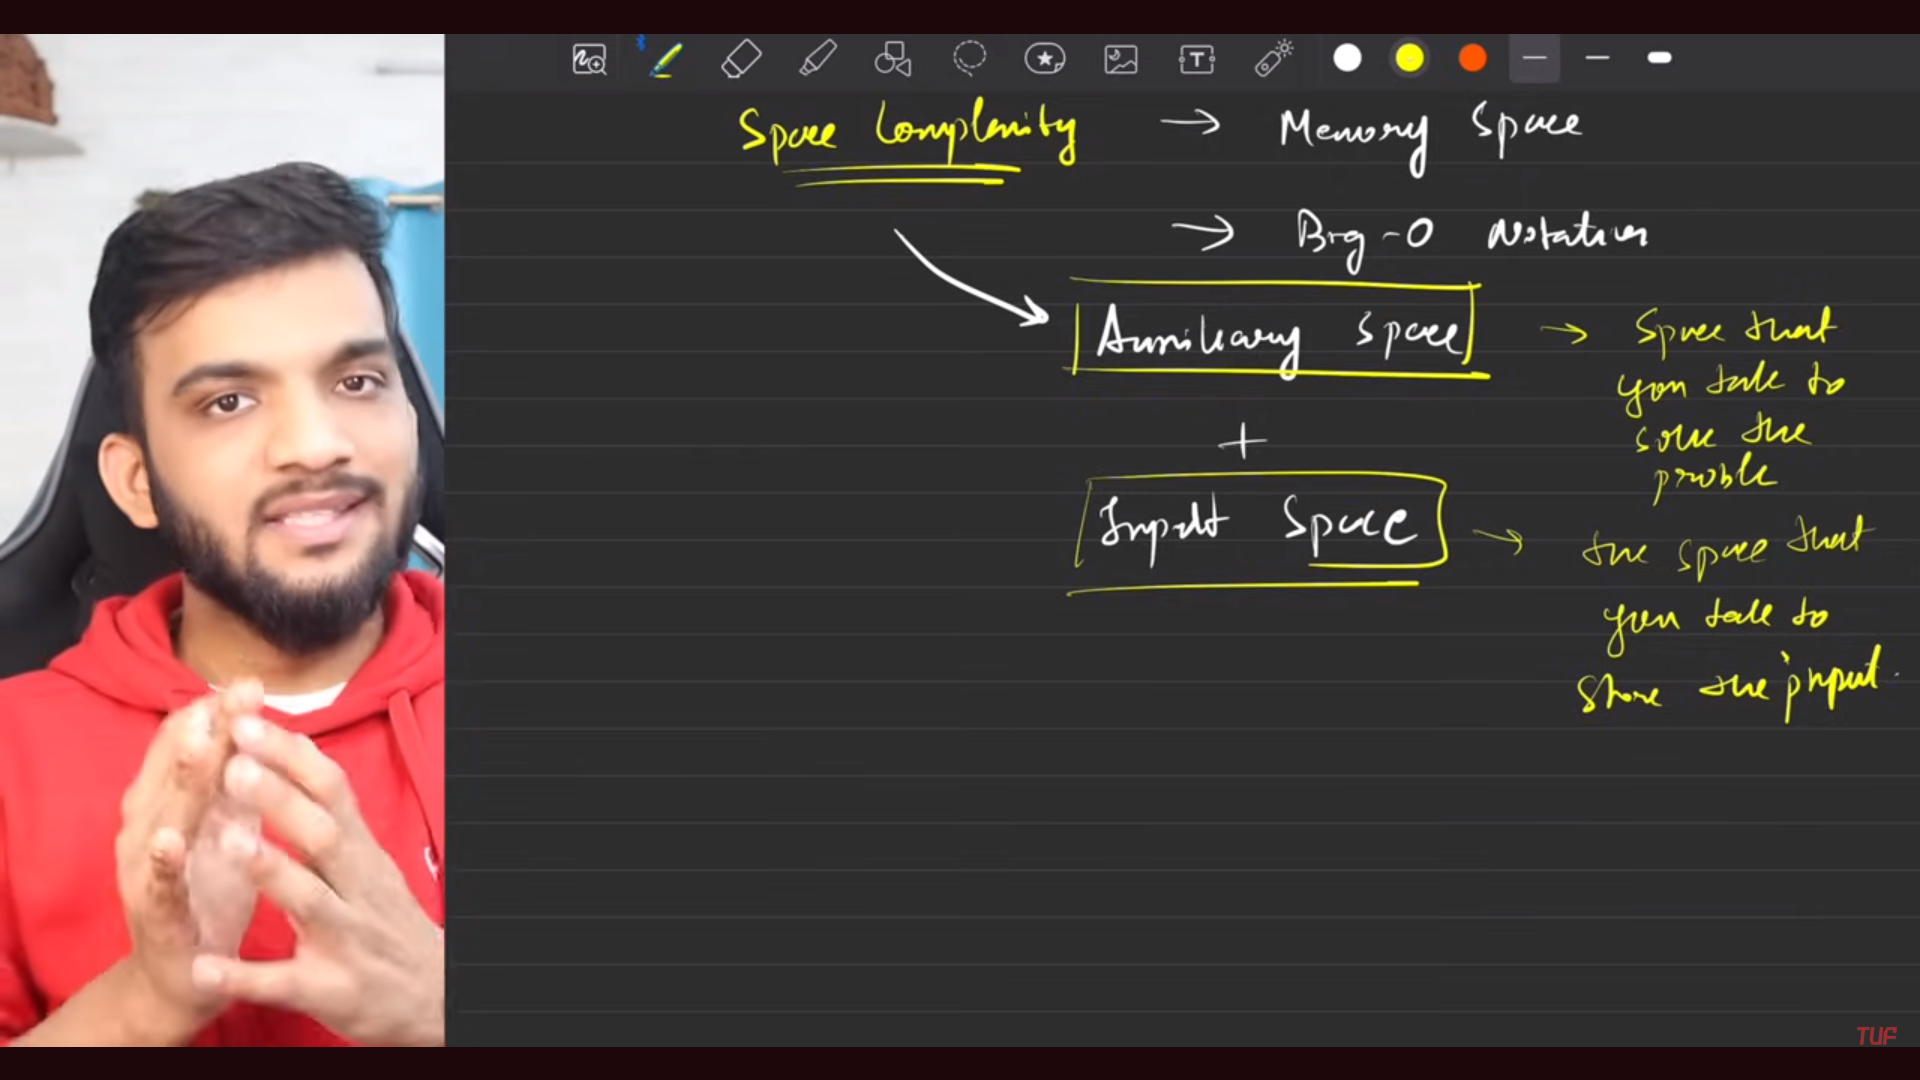 Space Complexity → Memory Space
→ Big-O Notation
Auxiliary Space → Space that
you take to
solve the
proble
+
Input Space → the space that
you take to
store the input.
TUF